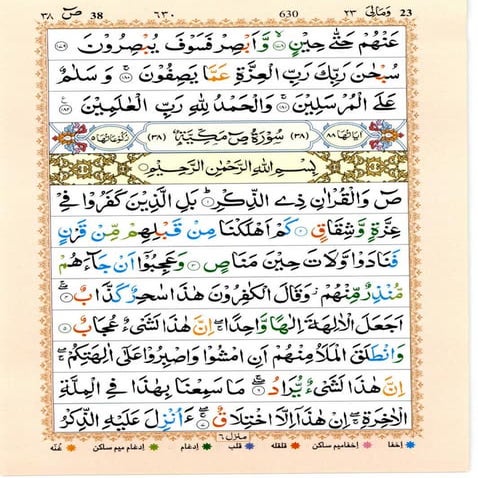 ص ٣٨ 38 ٦٣٠ 630 وَمَالِيَ ٢٣ 23
عَنْهُمْ حَتّٰى حِيْنٍ ۙ﴿۱۷۸﴾ وَّاَبْصِرْ فَسَوْفَ يُبْصِرُوْنَ ﴿۱۷۹﴾
سُبْحٰنَ رَبِّكَ رَبِّ الْعِزَّةِ عَمَّا يَصِفُوْنَ ۚ﴿۱۸۰﴾ وَسَلٰمٌ
عَلَى الْمُرْسَلِيْنَ ۚ﴿۱۸۱﴾ وَالْحَمْدُ لِلّٰهِ رَبِّ الْعٰلَمِيْنَ ﴿۱۸۲﴾
اٰيَاتُهَا ٨٨ (٣٨) سُوْرَةُ صٓ مَكِّيَّةٌ (٣٨) رُكُوْعَاتُهَا ٥
بِسْمِ اللّٰهِ الرَّحْمٰنِ الرَّحِيْمِ
صٓ وَالْقُرْاٰنِ ذِى الذِّكْرِ ؕ﴿۱﴾ بَلِ الَّذِيْنَ كَفَرُوْا فِىْ
عِزَّةٍ وَّشِقَاقٍ ﴿۲﴾ كَمْ اَهْلَكْنَا مِنْ قَبْلِهِمْ مِّنْ قَرْنٍ
فَنَادَوْا وَّلَاتَ حِيْنَ مَنَاصٍ ﴿۳﴾ وَعَجِبُوْۤا اَنْ جَآءَهُمْ
مُّنْذِرٌ مِّنْهُمْ ۫ وَقَالَ الْكٰفِرُوْنَ هٰذَا سٰحِرٌ كَذَّابٌ ۖۚ﴿۴﴾
اَجَعَلَ الْاٰلِهَةَ اِلٰهًا وَّاحِدًا ۖۚ اِنَّ هٰذَا لَشَىْءٌ عُجَابٌ ﴿۵﴾
وَانْطَلَقَ الْمَلَاُ مِنْهُمْ اَنِ امْشُوْا وَاصْبِرُوْا عَلٰٓى اٰلِهَتِكُمْ ۖۚ
اِنَّ هٰذَا لَشَىْءٌ يُّرَادُ ۖۚ﴿۶﴾ مَا سَمِعْنَا بِهٰذَا فِى الْمِلَّةِ
الْاٰخِرَةِ ۖۚ اِنْ هٰذَاۤ اِلَّا اخْتِلَاقٌ ۖۚ﴿۷﴾ ءَاُنْزِلَ عَلَيْهِ الذِّكْرُ
منزل ٦
اخفا اخفا میم ساکن قلقلہ قلب ادغام ادغام میم ساکن غنّہ